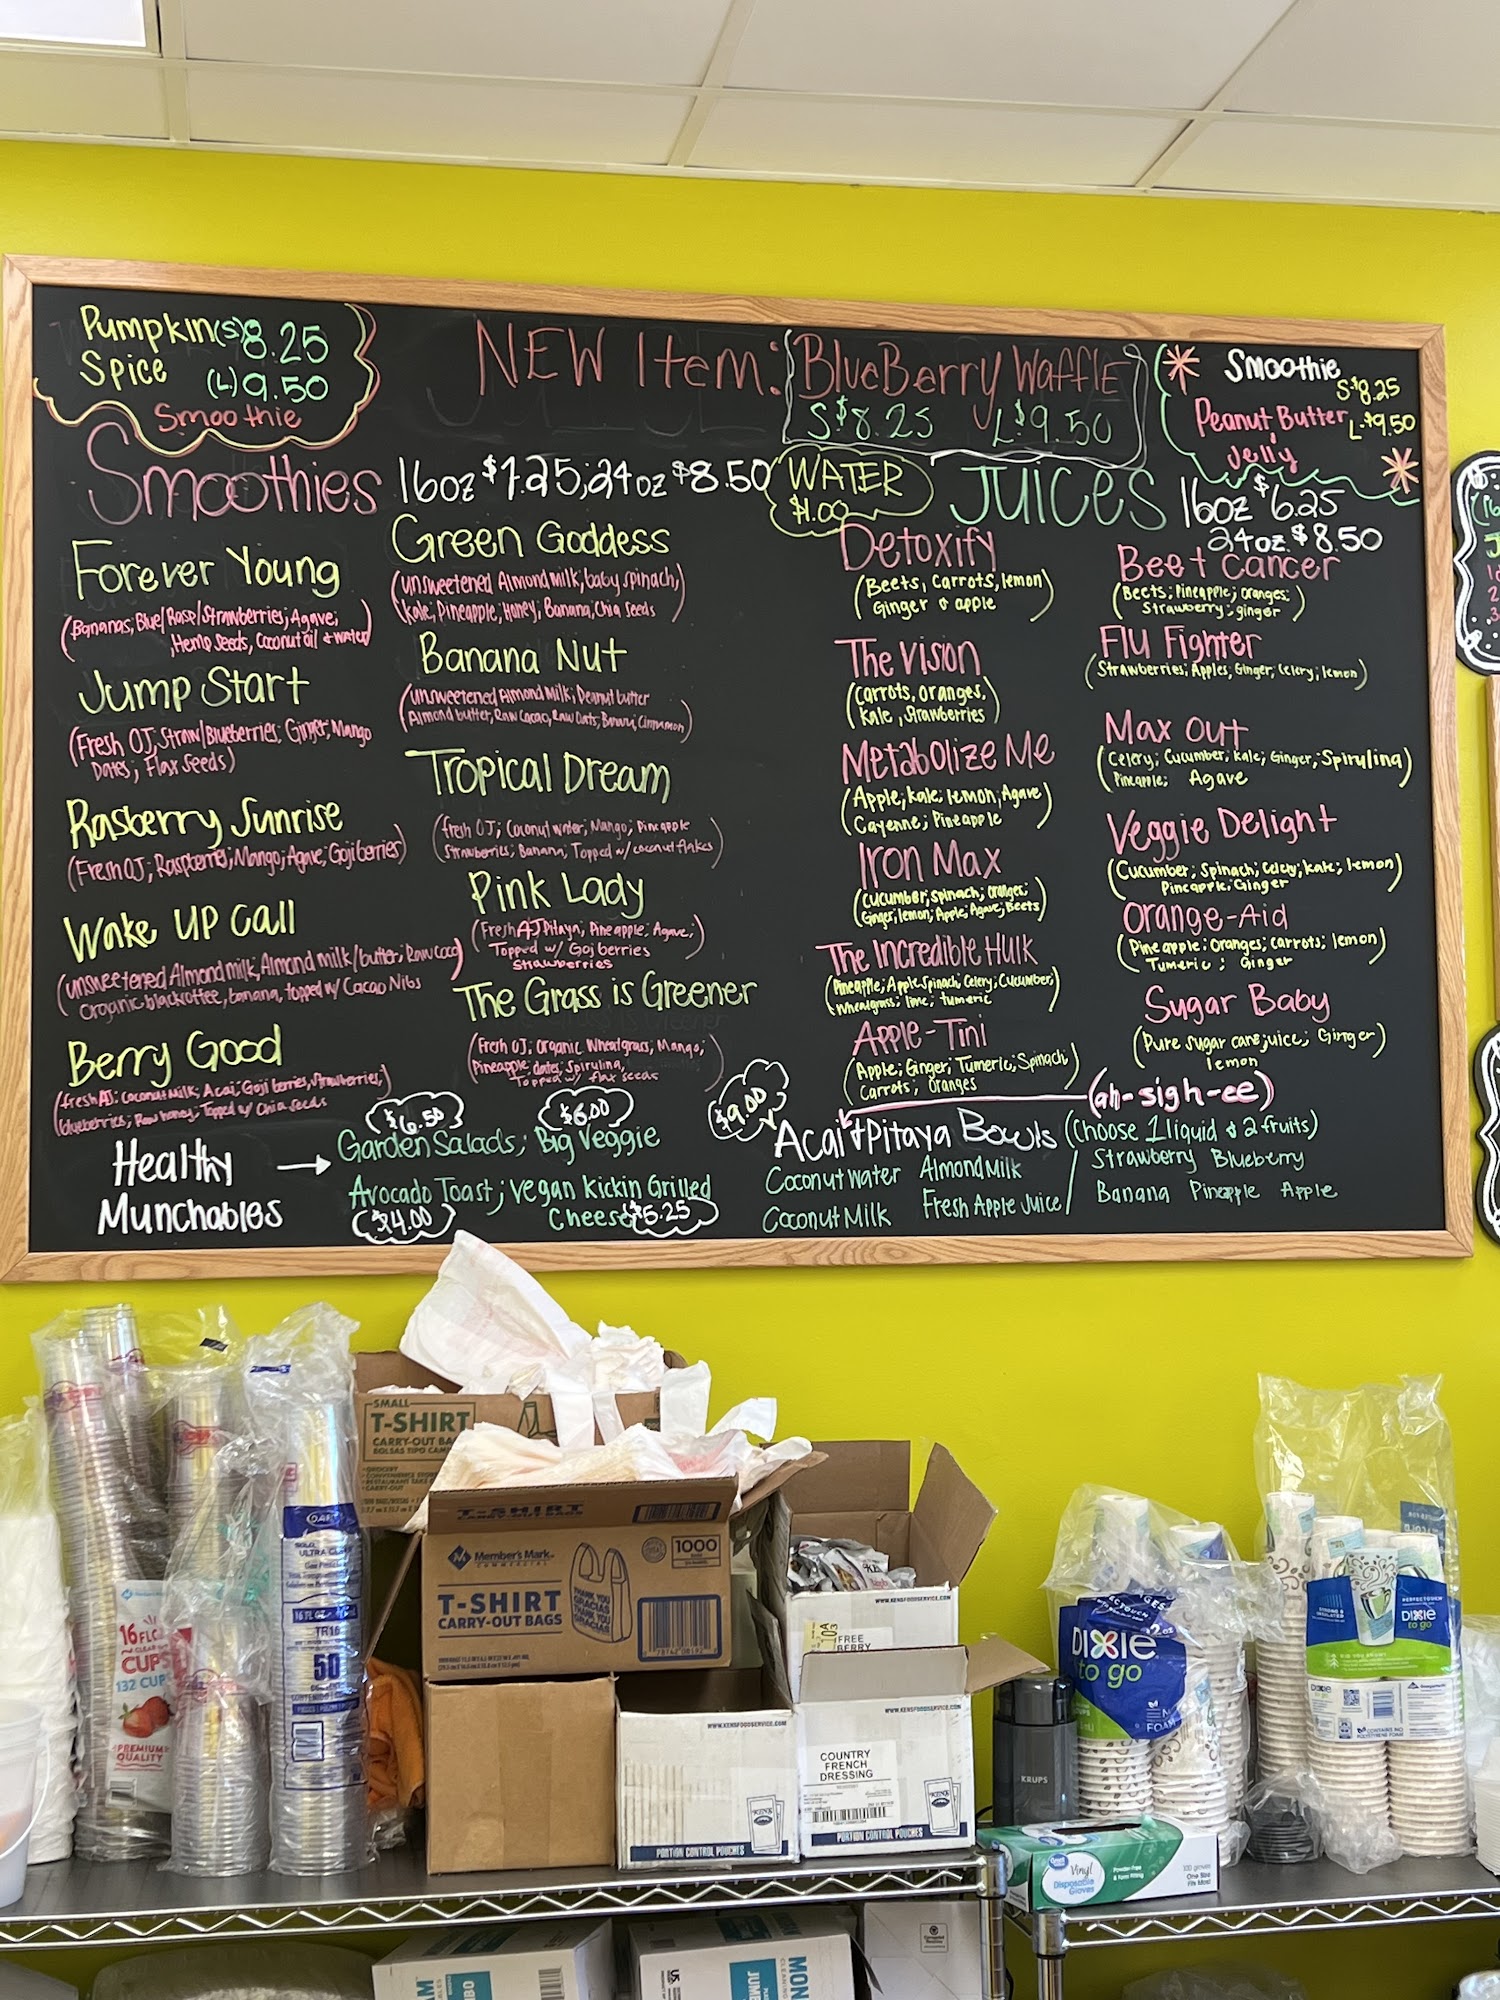 Pumpkin (S) 8.25
Spice (L) 9.50
Smoothie
NEW Item: BlueBerry Waffle
S $8.25 L $9.50
Smoothie
S $8.25
Peanut Butter L $9.50
Jelly
Smoothies 16oz $7.25; 24oz $8.50
Forever Young
(Bananas; Blue/Rasp/Strawberries; Agave;
Hemp Seeds, Coconut oil + water)
Jump Start
(Fresh OJ, Straw/Blueberries; Ginger, Mango
Dates; Flax Seeds)
Rasberry Sunrise
(Fresh OJ; Raspberries; Mango; Agave; Goji berries)
Wake UP Call
(unsweetened Almond milk, Almond milk/butter; Raw Cacao
Organic black coffee, banana, topped w/ Cacao Nibs
Berry Good
(fresh AJ; Coconut Milk; Acai; Goji berries, strawberries;
blueberries; Raw honey; Topped w/ Chia Seeds
Green Goddess
(unsweetened Almond milk, baby spinach,
Kale; Pineapple; Honey; Banana, Chia seeds
Banana Nut
(unsweetened Almond Milk; Peanut butter
Almond butter, Raw Cacao, Raw Oats; Banana; Cinnamon)
Tropical Dream
(fresh OJ; Coconut water; Mango; Pineapple
Strawberries; Banana; Topped w/ coconut flakes)
Pink Lady
(Fresh AJ Pitaya, Pineapple; Agave;)
Topped w/ Goji berries
Strawberries
The Grass is Greener
(Fresh OJ; Organic Wheatgrass; Mango;
Pineapple dates; Spirulina,
Topped w/ flax seeds
WATER
$1.00
Juices 16oz $6.25
24oz $8.50
Detoxify
(Beets, Carrots, lemon)
Ginger & apple
The Vision
(Carrots, oranges,
Kale, Strawberries)
Metabolize Me
(Apple; Kale; lemon; Agave)
Cayenne; Pineapple
Iron Max
(cucumber; spinach; oranges;
Ginger, lemon; Apple; Agave; Beets)
The Incredible Hulk
(Pineapple; Apple Spinach; Celery; Cucumber;
Wheatgrass; lime; tumeric
Apple-Tini
(Apple; Ginger; Tumeric; Spinach
Carrots; Oranges
Beet Cancer
(Beets; Pineapple; oranges;
Strawberry; ginger)
Flu Fighter
(Strawberries; Apples, Ginger, Celery; lemon)
Max Out
(Celery; Cucumber; Kale; Ginger; Spirulina)
Pineapple; Agave
Veggie Delight
(Cucumber; Spinach; Celery; Kale; lemon)
Pineapple; Ginger
Orange-Aid
(Pineapple; Oranges; carrots; lemon)
Tumeric; Ginger
Sugar Baby
(Pure sugar cane juice; Ginger)
lemon
Healthy
Munchables
$6.50 $6.00
Garden Salads; Big Veggie
Avocado Toast; Vegan Kickin Grilled
Cheese $5.25
$4.00
$9.00
(ah-sigh-ee)
Acai & Pitaya Bowls (Choose 1 liquid & 2 fruits)
Coconut Water Almond Milk
Coconut Milk Fresh Apple Juice
Strawberry Blueberry
Banana Pineapple Apple
SMALL
T-SHIRT
CARRY-OUT BA
T-SHIRT
Member's Mark
COMMERCIAL
1000
T-SHIRT
CARRY-OUT BAGS
THANK YOU
GRACIAS
16 FL O
CUPS
132 CUP
PREMIUM
QUALITY
SOLO
ULTRA CLEAR
TR16
50
WWW.KENSFOODSERVICE.COM
FREE
WWW.KENSFOODSERVICE.COM
PORTION CONTROL POUCHES
WWW.KENSFOODSERVICE.COM
COUNTRY
FRENCH
DRESSING
PORTION CONTROL POUCHES
KRUPS
DIXIE
to go
PERFECTOUCH
DIXIE
to go
Vinyl
Disposable
Gloves
100 gloves
One Size
Fits Most